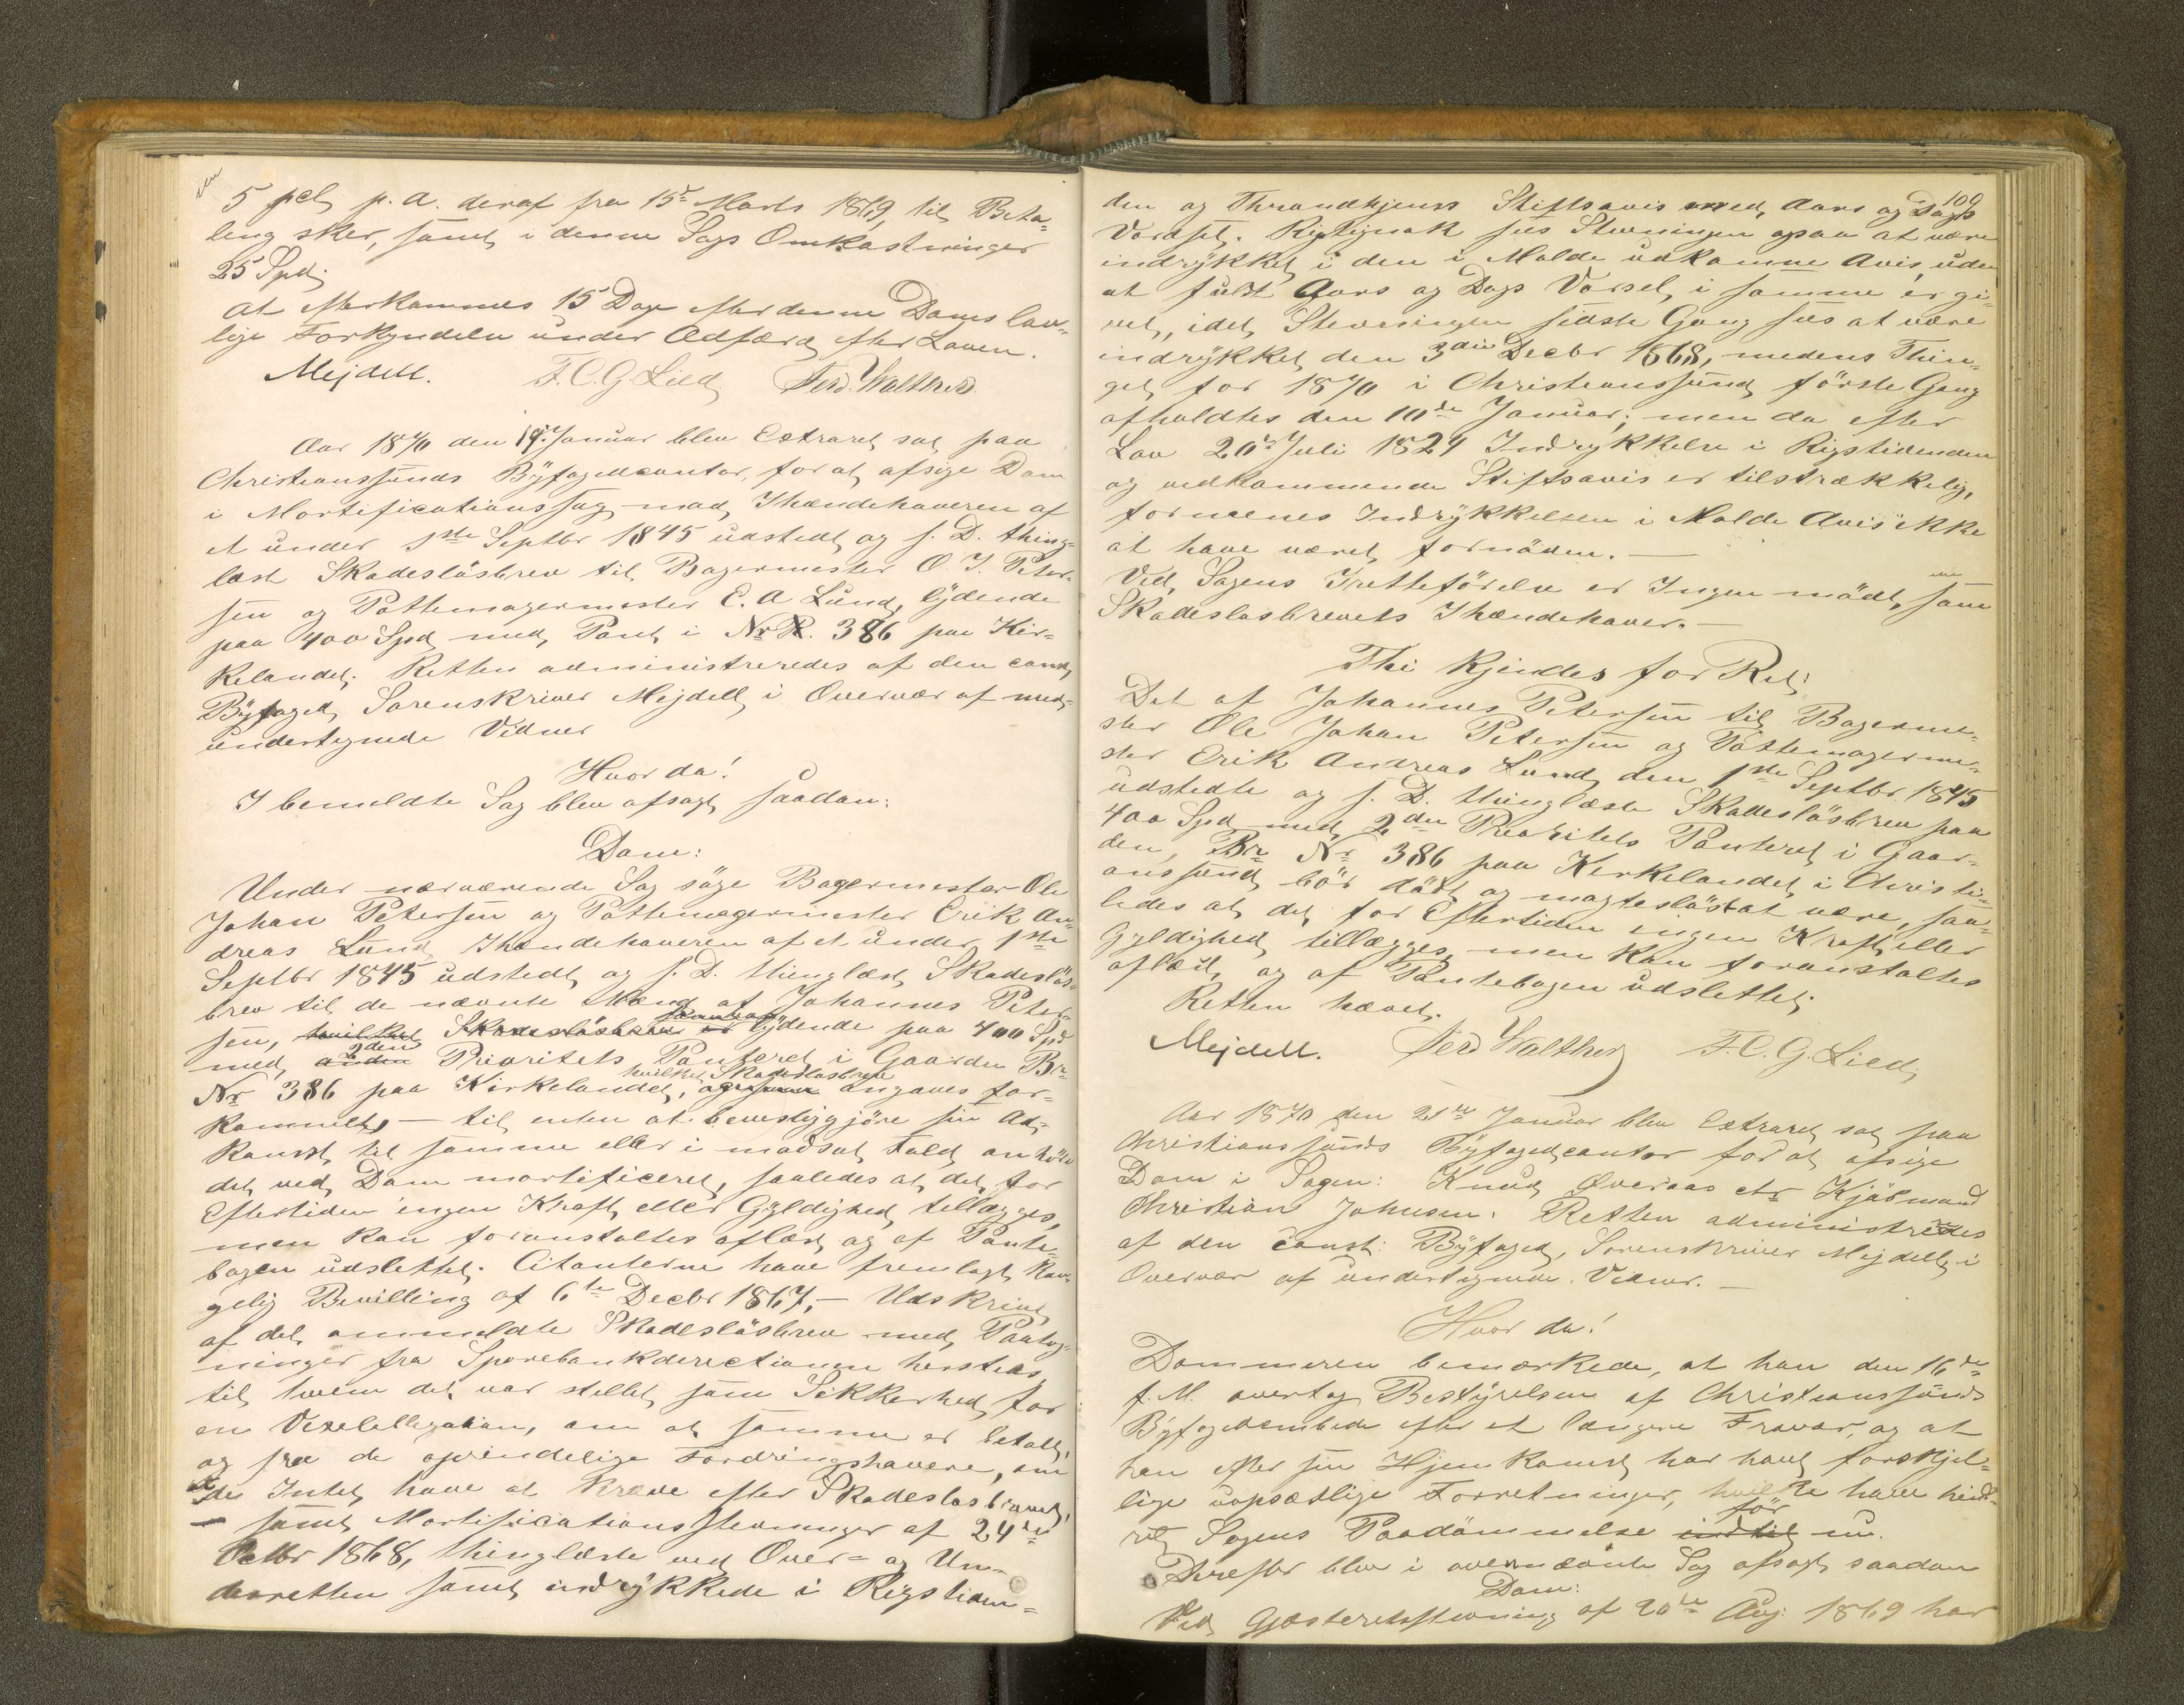 5 pct p. a. deraf fra 15de Marts 1869, til Beta-
ling skeer, samt i denne Sags Omkostninger
25 Spd.
At efterkommes 15 Dage efter denne Doms lov-
lige Forkyndelse under Adfærd efter Loven.
Mejdell. F. C. G. Lied Ferd. Walther
Aar 1870 den 19de Januar blev Extraret sat paa
Christianssunds Byfogedcontor, for at afsige Dom
i Mortificationssag mod Ihændehaveren af
et under 1ste Septbr 1845 udstedt og s. D. thing-
læst Skadesløsbrev til Bagermester O. J. Peter-
sen og Pottemagermester E. A Lund, lydende
paa 400 Spd med Pant i Nr 386 paa Kir-
kelandet. Retten administreredes af den const.
Byfoged, Sorenskriver Mejdell i Overvær af med-
undertegnede Vidner
Hvor da!
I bemeldte Sag blev afsagt saadan:
Dom:
Under nærværende Sag søge Bagermester Ole
Johan Petersen og Pottemagermester Erik An-
dreas Lund Ihændehaveren af et under 1ste
Septbr 1845 udstedt og s. D. thinglæst Skadesløs-
brev til de nævnte Mænd af Johannes Peter-
sen, hvilket Skadesløsbrev er lydende paa 400 Spd
med anden 2den Prioritets Panteret i Gaarden Br.
Nr 386 paa Kirkelandet, hvilket Skadesløsbrev og som angaves for-
kommet, — til enten at bevisliggjøre sin Ad-
komst til samme eller i modsat Fald anhøre
det ved Dom mortificeret, saaledes at det for
Eftertiden ingen Kraft eller Gyldighed tillægges,
men kan foranstaltes aflæst og af Pante-
bogen udslettet. Citanterne have fremlagt Kon-
gelig Bevilling af 6te Decbr 1867, — Udskrivt
af det ommeldte Skadesløsbrev med Paateg-
ninger fra Sparebankdirectionen hersteds,
til hvem det var stillet som Sikkerhed for
en Vexelobligation, om at samme er betalt,
og fra de oprindelige Fordringshavere, om
at de Intet have at kræve efter Skadesløsbrevet,
— samt Mortificationsstevninger af 24de
Octbr 1868, thinglæste ved Over- og Un-
derretten samt indrykkede i Rigstiden-
109
den og Throndhjems Stiftsavis med Aars og Dags
Varsel. Rigtignok sees Stevningen ogsaa at være
indrykket i den i Molde udkomne Avis, uden
at fuldt Aars og Dags Varsel i samme er gi-
vet, idet Stevningen sidste Gang sees at være
indrykket den 3die Decbr 1868, medens Thin-
get for 1870 i Christianssund første Gang
afholdtes den 10de Januar; men da efter
Lov 20de Juli 1824 Indrykkelse i Rigstidenden
og vedkommende Stiftsavis er tilstrækkelig,
formenes Indrykkelsen i Molde Avis ikke
at have været fornøden. —
Ved Sagens Iretteførelse er Ingen mødt som
Skadesløsbrevets Ihændehaver. —
Thi kjendes for Ret:
Det af Johannes Petersen til Bagerme-
ster Ole Johan Petersen og Pottemagerme-
ster Erik Andreas Lund den 1ste Septbr 1845
udstedte og s. D. thinglæste Skadesløsbrev paa
400 Spd med 2den Prioritets Panteret i Gaar-
den, Br. Nr. 386 paa Kirkelandet i Christi-
anssund bør dødt og magtesløst at være, saa-
ledes at det for Eftertiden ingen Kraft eller
Gyldighed tillægges, men kan foranstaltes
aflæst og af Pantebogen udslettet.
Retten hævet.
Mejdell. Ferd Walther F. C. G. Lied
Aar 1870 den 21de Januar blev Extraret sat paa
Christianssunds Byfogedcontor for at afsige
Dom i Sagen: Knud Øveraas ctr Kjøbmand
Christian Johnsen. Retten administredes
af den const. Byfoged, Sorenskriver Mejdell i
Overvær af undertegnede Vidner. —
Hvor da!
Dommeren bemærkede, at han den 16de
f. M. overtog Bestyrelsen af Christianssunds
Byfogedembede efter et længere Fravær, og at
han efter sin Hjemkomst har havt forskjel-
lige uopsættlige Forretninger, hvilke have hind-
ret Sagens Paadømmelse indtil før nu.
Derefter blev i ovennævnte Sag afsagt saadan
Dom:
Ved Gjæsteretsstevning af 20de Aug. 1869 har